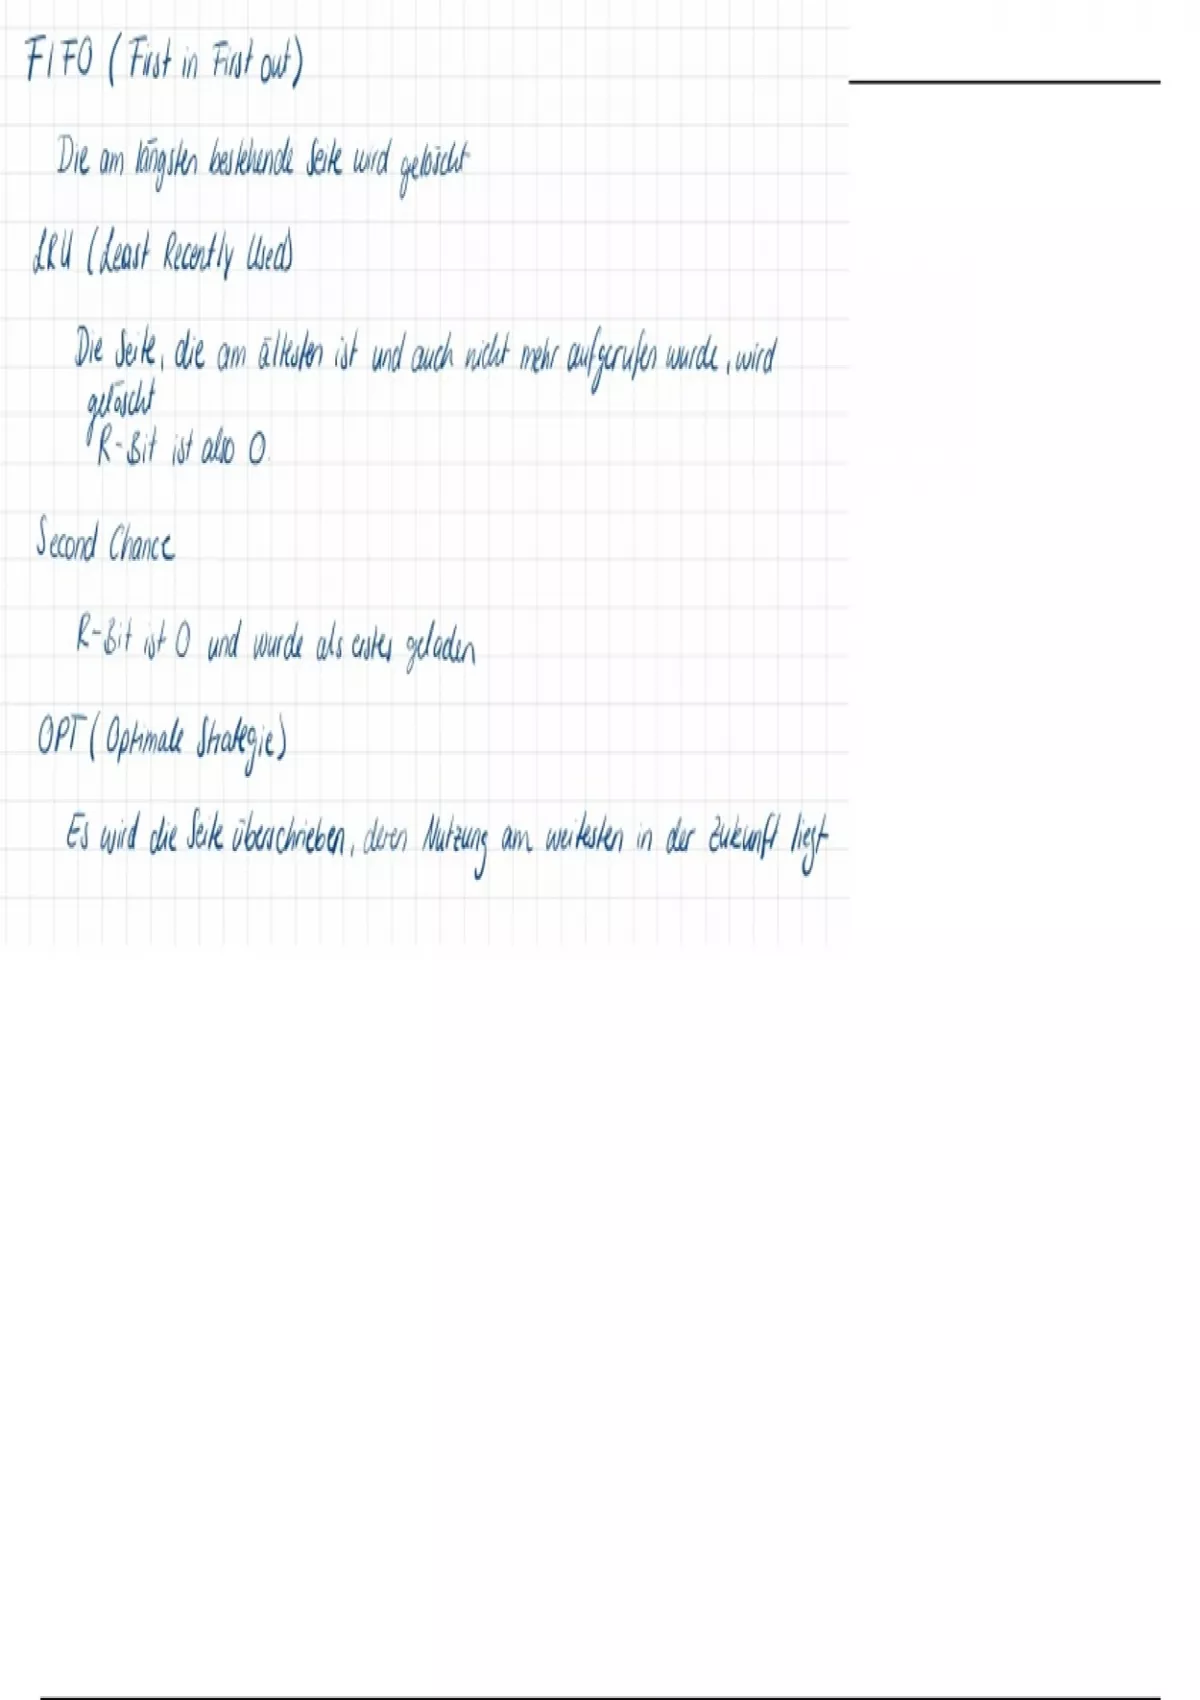 FIFO (First in First out)
Die am längsten bestehende Seite wird gelöscht
LRU (Least Recently Used)
Die Seite, die am ältesten ist und auch nicht mehr aufgerufen wurde, wird
gelöscht
R-Bit ist also 0.
Second Chance
R-Bit ist 0 und wurde als erstes geladen
OPT (Optimale Strategie)
Es wird die Seite überschrieben, deren Nutzung am weitesten in der Zukunft liegt